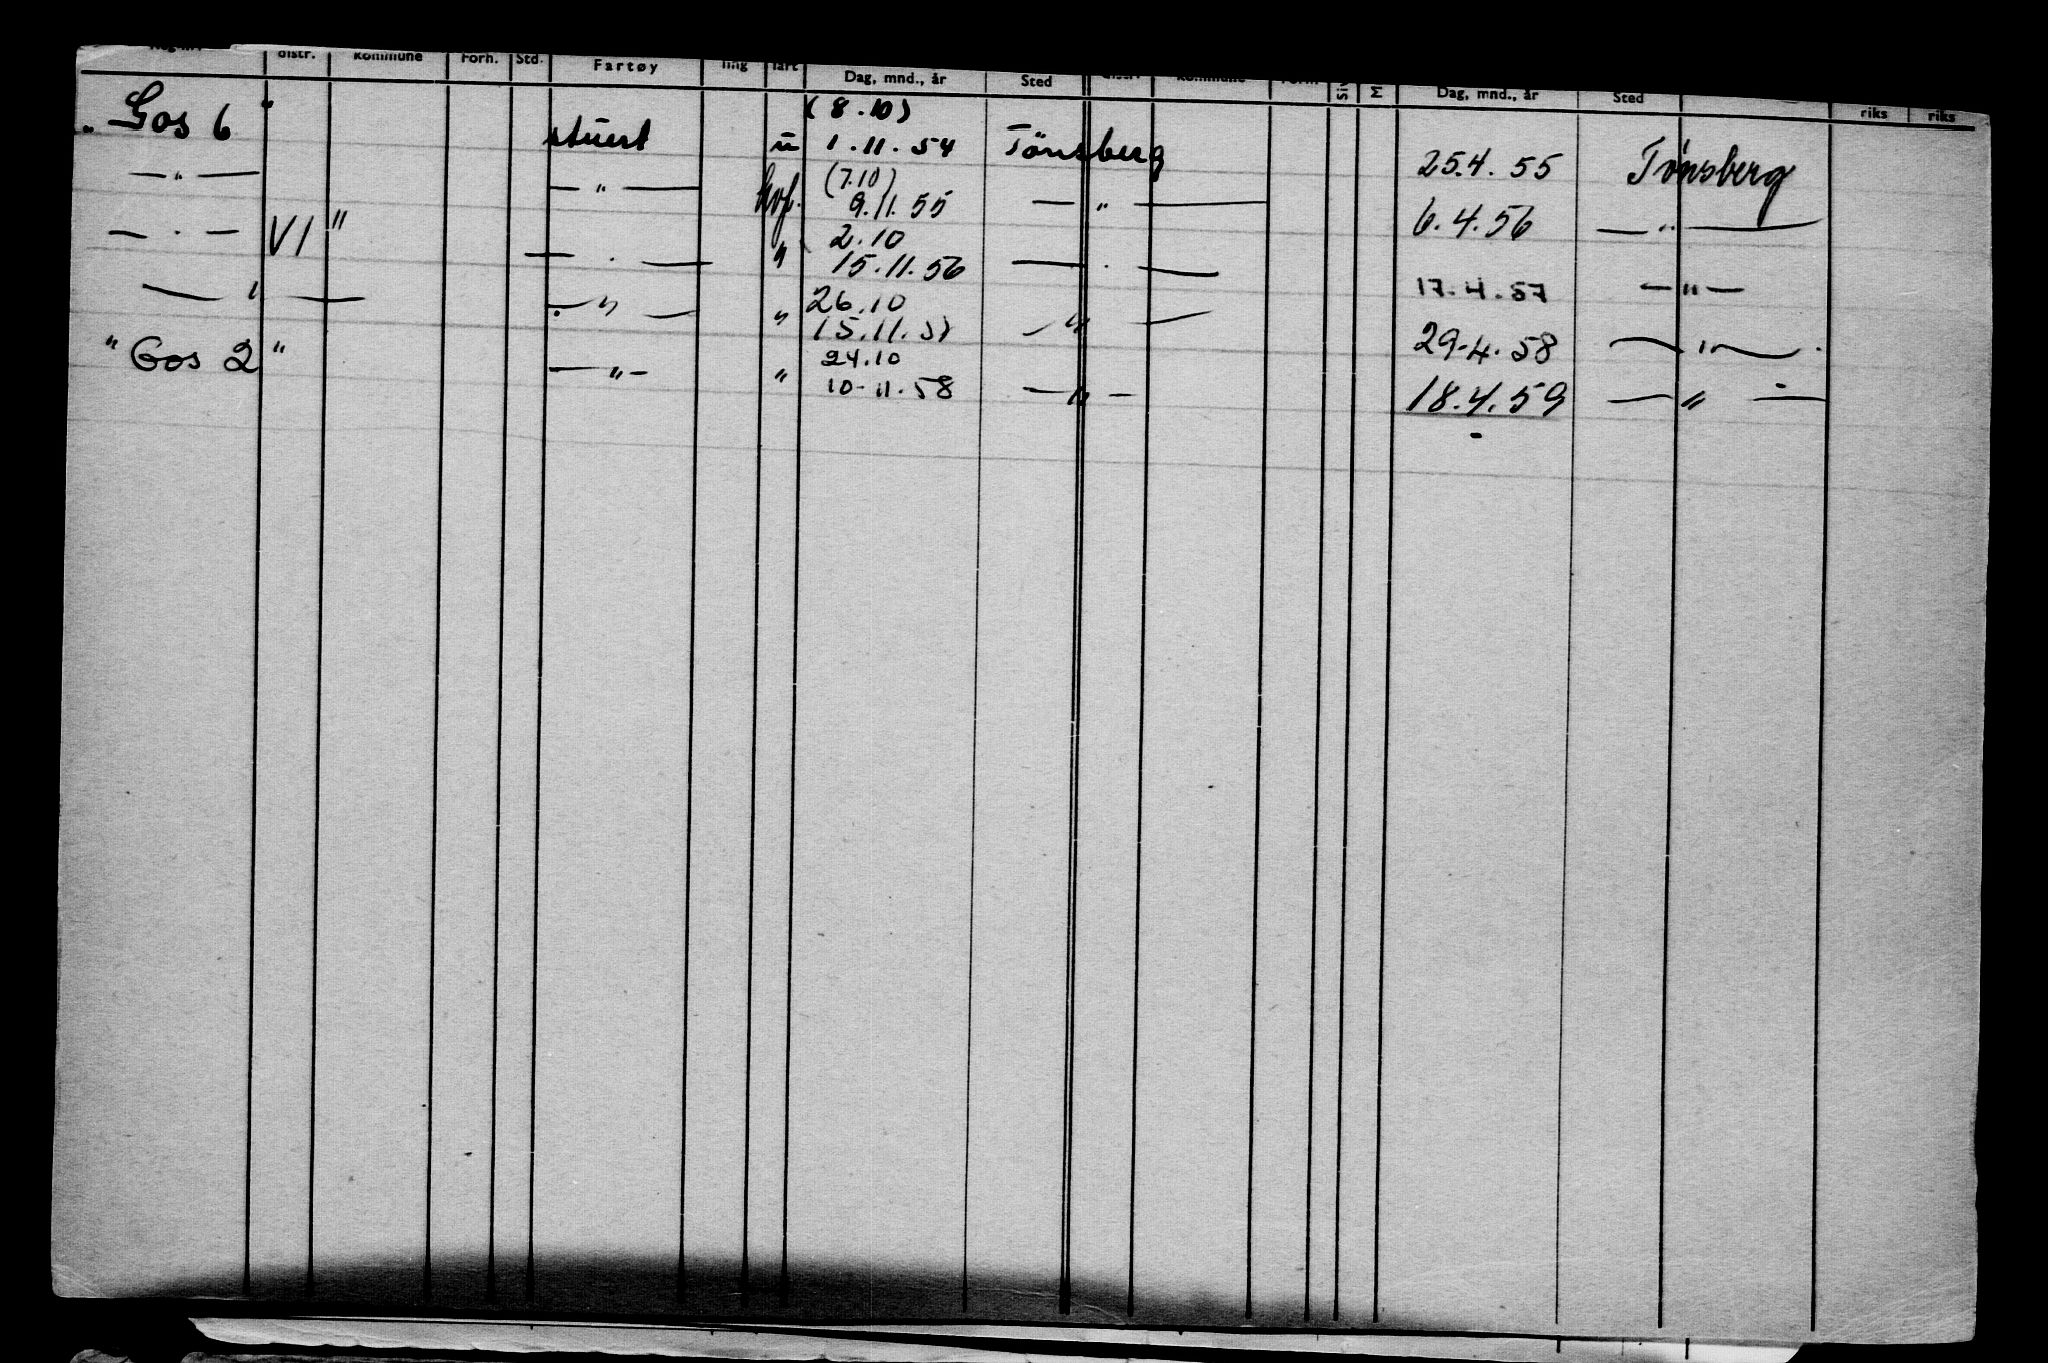 distr. kommune Forh. Std. Fartøy fart Dag, mnd., år Sted kommune Dag, mnd., år Sted riks riks
(8.10)
"Gos 6" stuert u 1.11.54 Tönsberg 25.4.55 Tønsberg
(7.10)
— " — — " — hvf. 9.11.55 — " — 6.4.56 — " —
2.10
— " — VI " — . — " 15.11.56 — . — 17.4.57 — " —
26.10
— " — — " — " 15.11.57 — " — 29.4.58 — " — .
24.10
"Gos 2" — " — " 10-11.58 — " — 18.4.59 — " —